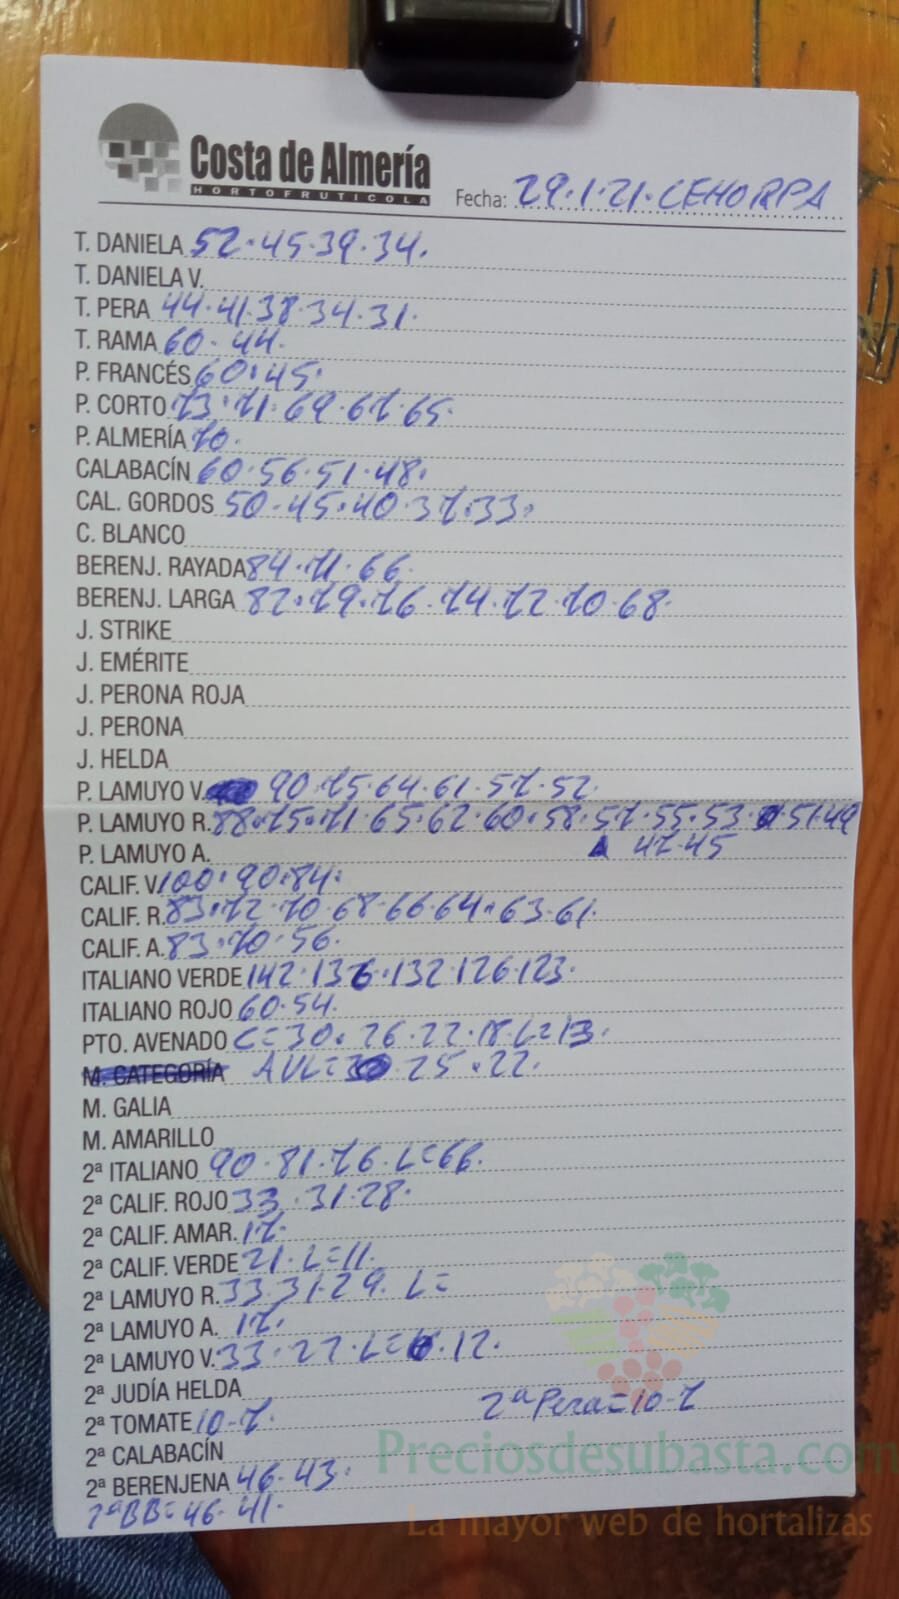 Costa de Almería
HORTOFRUTICOLA
Fecha: 29.1.21. CEHORPA
T. DANIELA 52.45.39.34.
T. DANIELA V.
T. PERA 44.41.38.34.31.
T. RAMA 60. 44.
P. FRANCÉS 60.45.
P. CORTO 73.71.69.67.65.
P. ALMERÍA 70.
CALABACÍN 60.56.51.48.
CAL. GORDOS 50.45.40.37.33.
C. BLANCO
BERENJ. RAYADA 84.71.66.
BERENJ. LARGA 82.79.76.74.72.70.68.
J. STRIKE
J. EMÉRITE
J. PERONA ROJA
J. PERONA
J. HELDA
P. LAMUYO V. 90.75.64.61.57.52.
P. LAMUYO R. 88.75.71.65.62.60.58.57.55.53.51.49
P. LAMUYO A. 47.45
CALIF. V. 100.90.84.
CALIF. R. 83.72.70.68.66.64.63.61.
CALIF. A. 83.70.56.
ITALIANO VERDE 142.136.132.126.123.
ITALIANO ROJO 60.54.
PTO. AVENADO C=30.26.22.18.L=13.
M. CATEGORÍA AVL= 25.22.
M. GALIA
M. AMARILLO
2ª ITALIANO 90.81.76.L=66.
2ª CALIF. ROJO 33.31.28.
2ª CALIF. AMAR. 17.
2ª CALIF. VERDE 21.L=11.
2ª LAMUYO R. 33.31.29. L=
2ª LAMUYO A. 17.
2ª LAMUYO V. 33.22.L= .12.
2ª JUDÍA HELDA
2ª Pera=10-7
2ª TOMATE 10-7.
2ª CALABACÍN
2ª BERENJENA 46.43.
2ªBB=46.41.
Preciosdesubasta.com
La mayor web de hortalizas